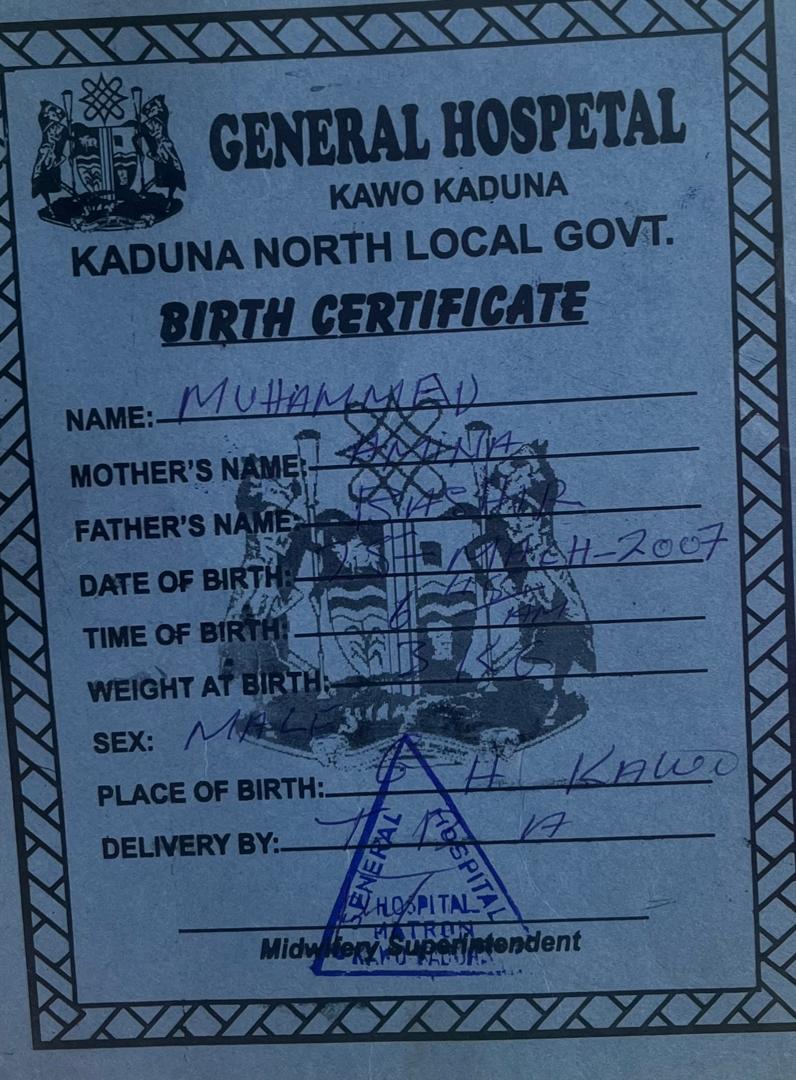 GENERAL HOSPETAL
KAWO KADUNA
KADUNA NORTH LOCAL GOVT.
BIRTH CERTIFICATE
NAME: MUHAMMED
MOTHER'S NAME: AMINA
FATHER'S NAME: BASHIR
DATE OF BIRTH: MACH-2007
TIME OF BIRTH: 6 45 AM
WEIGHT AT BIRTH: 3 KG
SEX: MALE
PLACE OF BIRTH: G H KAWO
DELIVERY BY:
GENERAL HOSPITAL
HOSPITAL
MATRON
KAWO KADUNA
Midwifery Superintendent